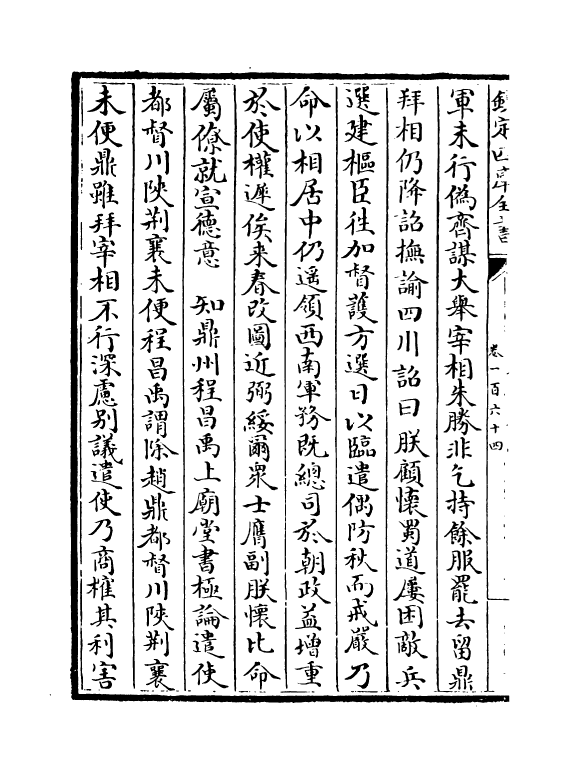 欽定四庫全書
卷一百六十四
軍未行偽齊謀大舉宰相朱勝非乞持餘服罷去留鼎
拜相仍降詔撫諭四川詔曰朕顧懷蜀道屢困敵兵
選建樞臣徃加督護方選日以臨遣偶防秋而戒嚴乃
命以相居中仍遥領西南軍務既總司於朝政益增重
於使權遲俟来春改圖近弼綏爾衆士膺副朕懷比命
屬僚就宣德意　知鼎州程昌禹上廟堂書極論遣使
都督川陜荆襄未便程昌禹謂除趙鼎都督川陜荆襄
未便鼎雖拜宰相不行深慮别議遣使乃商榷其利害